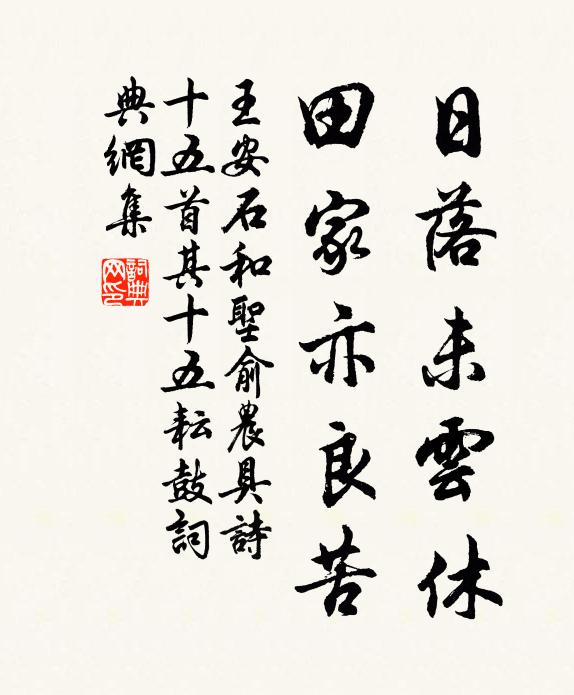 日落未雲休
田家亦良苦
王安石和聖俞農具詩
十五首其十五耘鼓詞
典網集
詞典网印